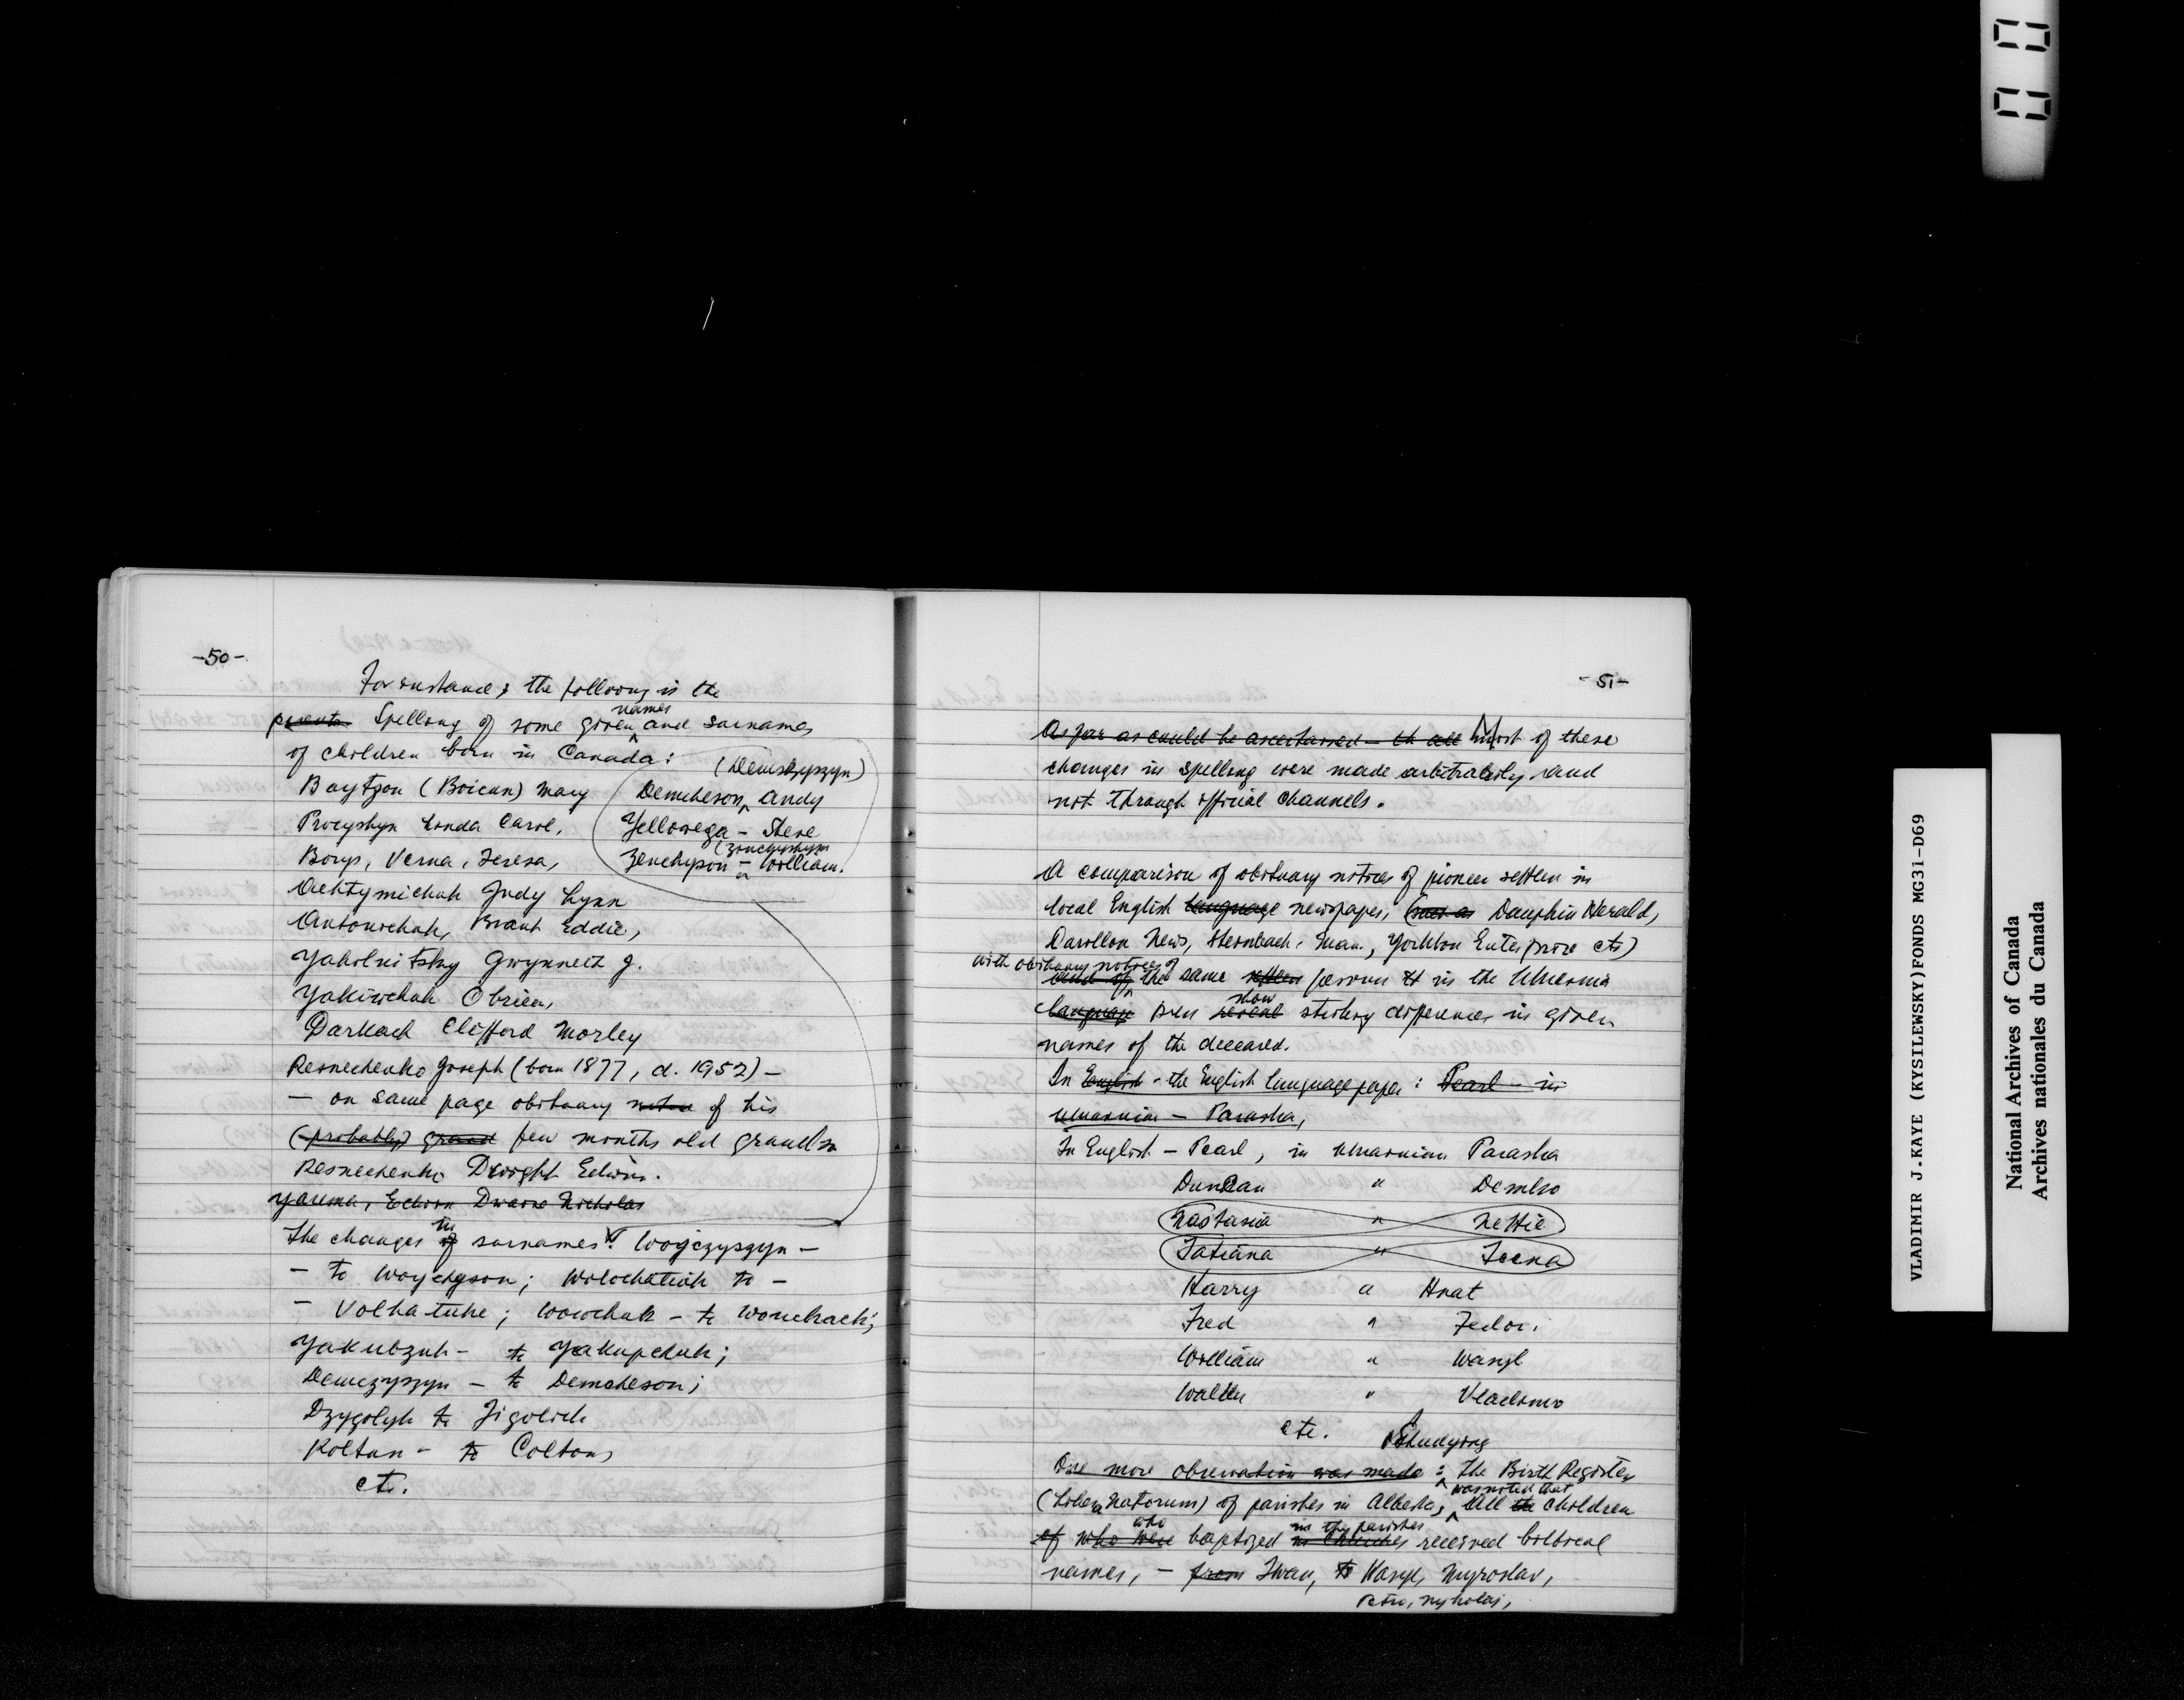 -50-
For instance, the following is the
Spelling of some given names and surnames
of children born in Canada:
(Demczyszyn)
Boytzon (Boicun) Mary Demcheson, Andy
Procyshyn Linda Carol, Yellowega - Steve
Borys, Verna, Teresa, Zenchyson - William.
Achtymichuk Judy Lynn
Antonichuk, Brant Eddie,
Yakolnitsky Gwynneth J.
Yakiwchuk Obrien,
Darkach Clifford Morley
Resnechenko Joseph (born 1877, d. 1952) -
- on same page obituary notice of his
(probably) grand few months old grandson
Resnechenko Dwight Edwin.
Yarema, Edwin Dwaine Nicholas
The changes in of surnames: Wojczyszyn -
- to Woychyson; Wolochatiuk to -
- Volkatuke; Wowchuk - to Wouchack;
Yakubzuk - to Yakupchuk;
Demczyszyn - to Demcheson;
Dzygolyk to Jigolick
Koltun - to Colton,
etc.
-51-
As far as could be ascertained - all Most of these
changes in spelling were made arbitrarily and
not through official channels.
A comparison of obituary notices of pioneer settlers in
local English language newspapers, (such as Dauphin Herald,
News, Steinbach, Man., Yorkton Enterprise etc)
with obituary notices of
and of the same settlers persons in the Ukrainian
language press reveal show striking differences in given
names of the deceased.
In English - the English language paper: Pearl - in
Ukrainian - Paraska,
In English - Pearl, in Ukrainian Paraska
Duncan " Demko
Nastasia " Nettie
Tatiana " Teena
Harry " Hnat
Fred " Fedor.
William " Wasyl
Walter " Vladimir
etc. Studying
One more observation was made: the Birth Register
was noted that
(Liber Natorum) of parishes in Alberta, All the children
who in the parishes
of who were baptized in churches received biblical
names, - from Iwan, to Wasyl, Myroslav,
Petro, Mykolaj,
VLADIMIR J.KAYE (KYSILEWSKY)FONDS MG31-D69
National Archives of Canada
Archives nationales du Canada